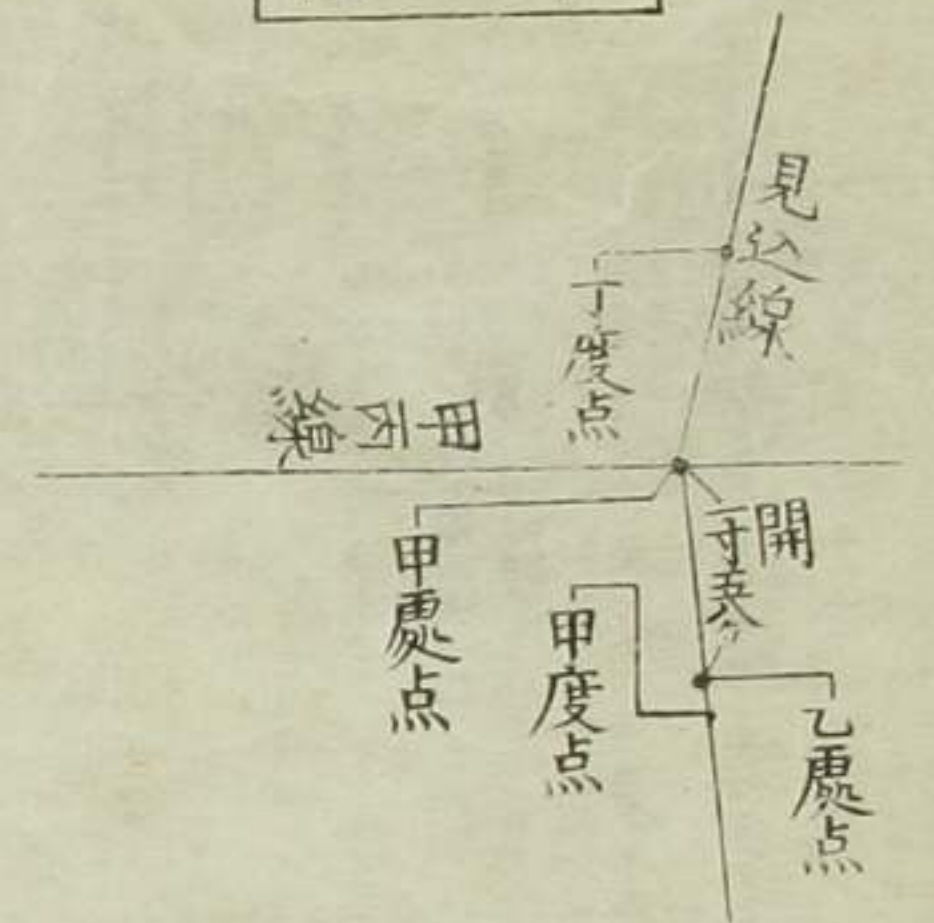 見込線
丁度点
甲丙線
開
一寸五分
甲處点
甲度点
乙處点